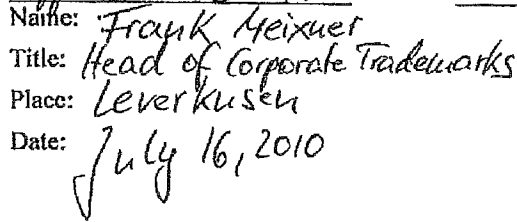 Name: Frank Meixner
Title: Head of Corporate Trademarks
Place: Leverkusen
Date: July 16, 2010